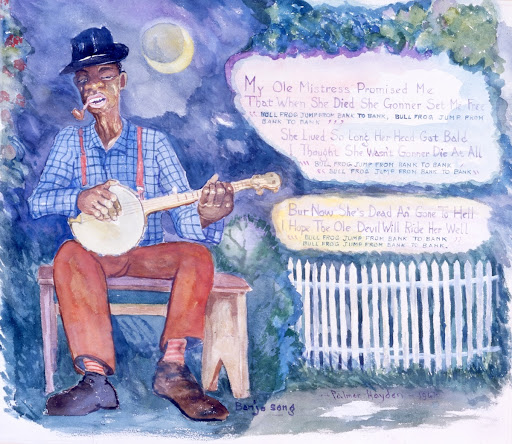 My Ole Mistress Promised Me
That When She Died She Gonner Set Me Free
"" BULL FROG JUMP FROM BANK TO BANK, BULL FROG JUMP FROM
BANK TO BANK """
She Lived So Long Her Head Got Bald
I Thought She Wasn't Gonner Die At All
"" BULL FROG JUMP FROM BANK TO BANK ""
"" BULL FROG JUMP FROM BANK TO BANK ""
But Now She's Dead An' Gone To Hell
I Hope The Ole Devil Will Ride Her Well
"" BULL FROG JUMP FROM BANK TO BANK ""
BULL FROG JUMP FROM BANK TO BANK.
Banjo song
Palmer Hayden